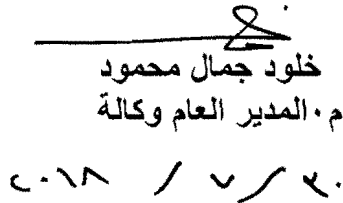 خلود جمال محمود
م٠المدير العام وكالة
٣٠ / ٧ / ٢٠١٨